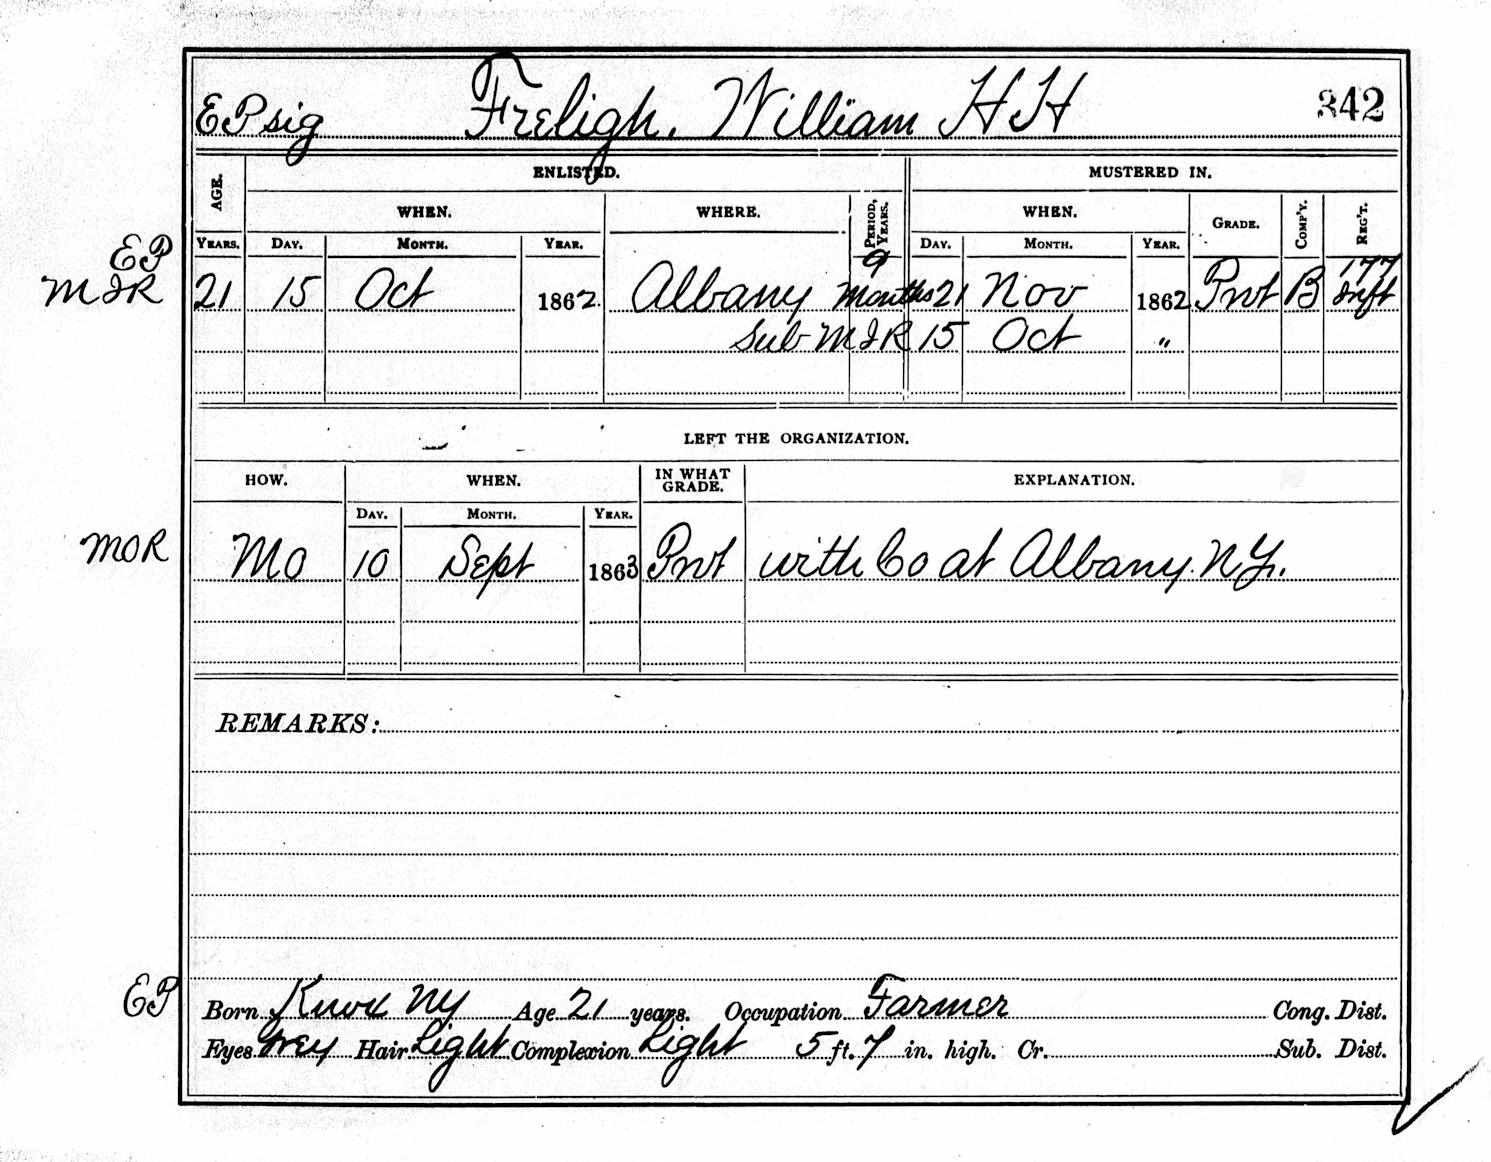 EP sig Freligh, William H H 342
AGE. ENLISTED. MUSTERED IN.
WHEN. WHERE. PERIOD, YEARS. WHEN. GRADE. COMP'Y. REG'T.
YEARS. DAY. MONTH. YEAR. DAY. MONTH. YEAR.
EP 9 177
MIR 21 15 Oct 1862 Albany Months 21 Nov 1862 Pvt B Inft
Sub MIR 15 Oct "
LEFT THE ORGANIZATION.
HOW. WHEN. IN WHAT GRADE. EXPLANATION.
DAY. MONTH. YEAR.
MOR MO 10 Sept 1863 Pvt with Co at Albany N.Y.
REMARKS:
EP Born Knox NY Age 21 years. Occupation Farmer Cong. Dist.
Eyes Grey Hair Light Complexion Light 5 ft. 7 in. high. Cr. Sub. Dist.